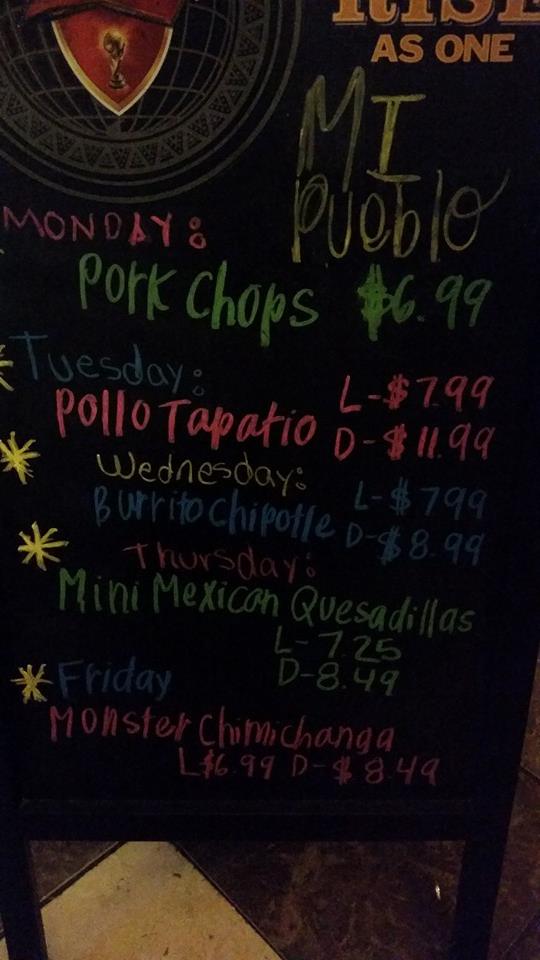 RISE
AS ONE
MI
Pueblo
MONDAY:
Pork Chops $6.99
Tuesday:
Pollo Tapatio L-$7.99
D-$11.99
Wednesday:
Burrito Chipotle L-$799
D-$8.99
Thursday:
Mini Mexican Quesadillas
L-7.25
D-8.49
Friday
Monster Chimichanga
L$6.99 D-$8.49